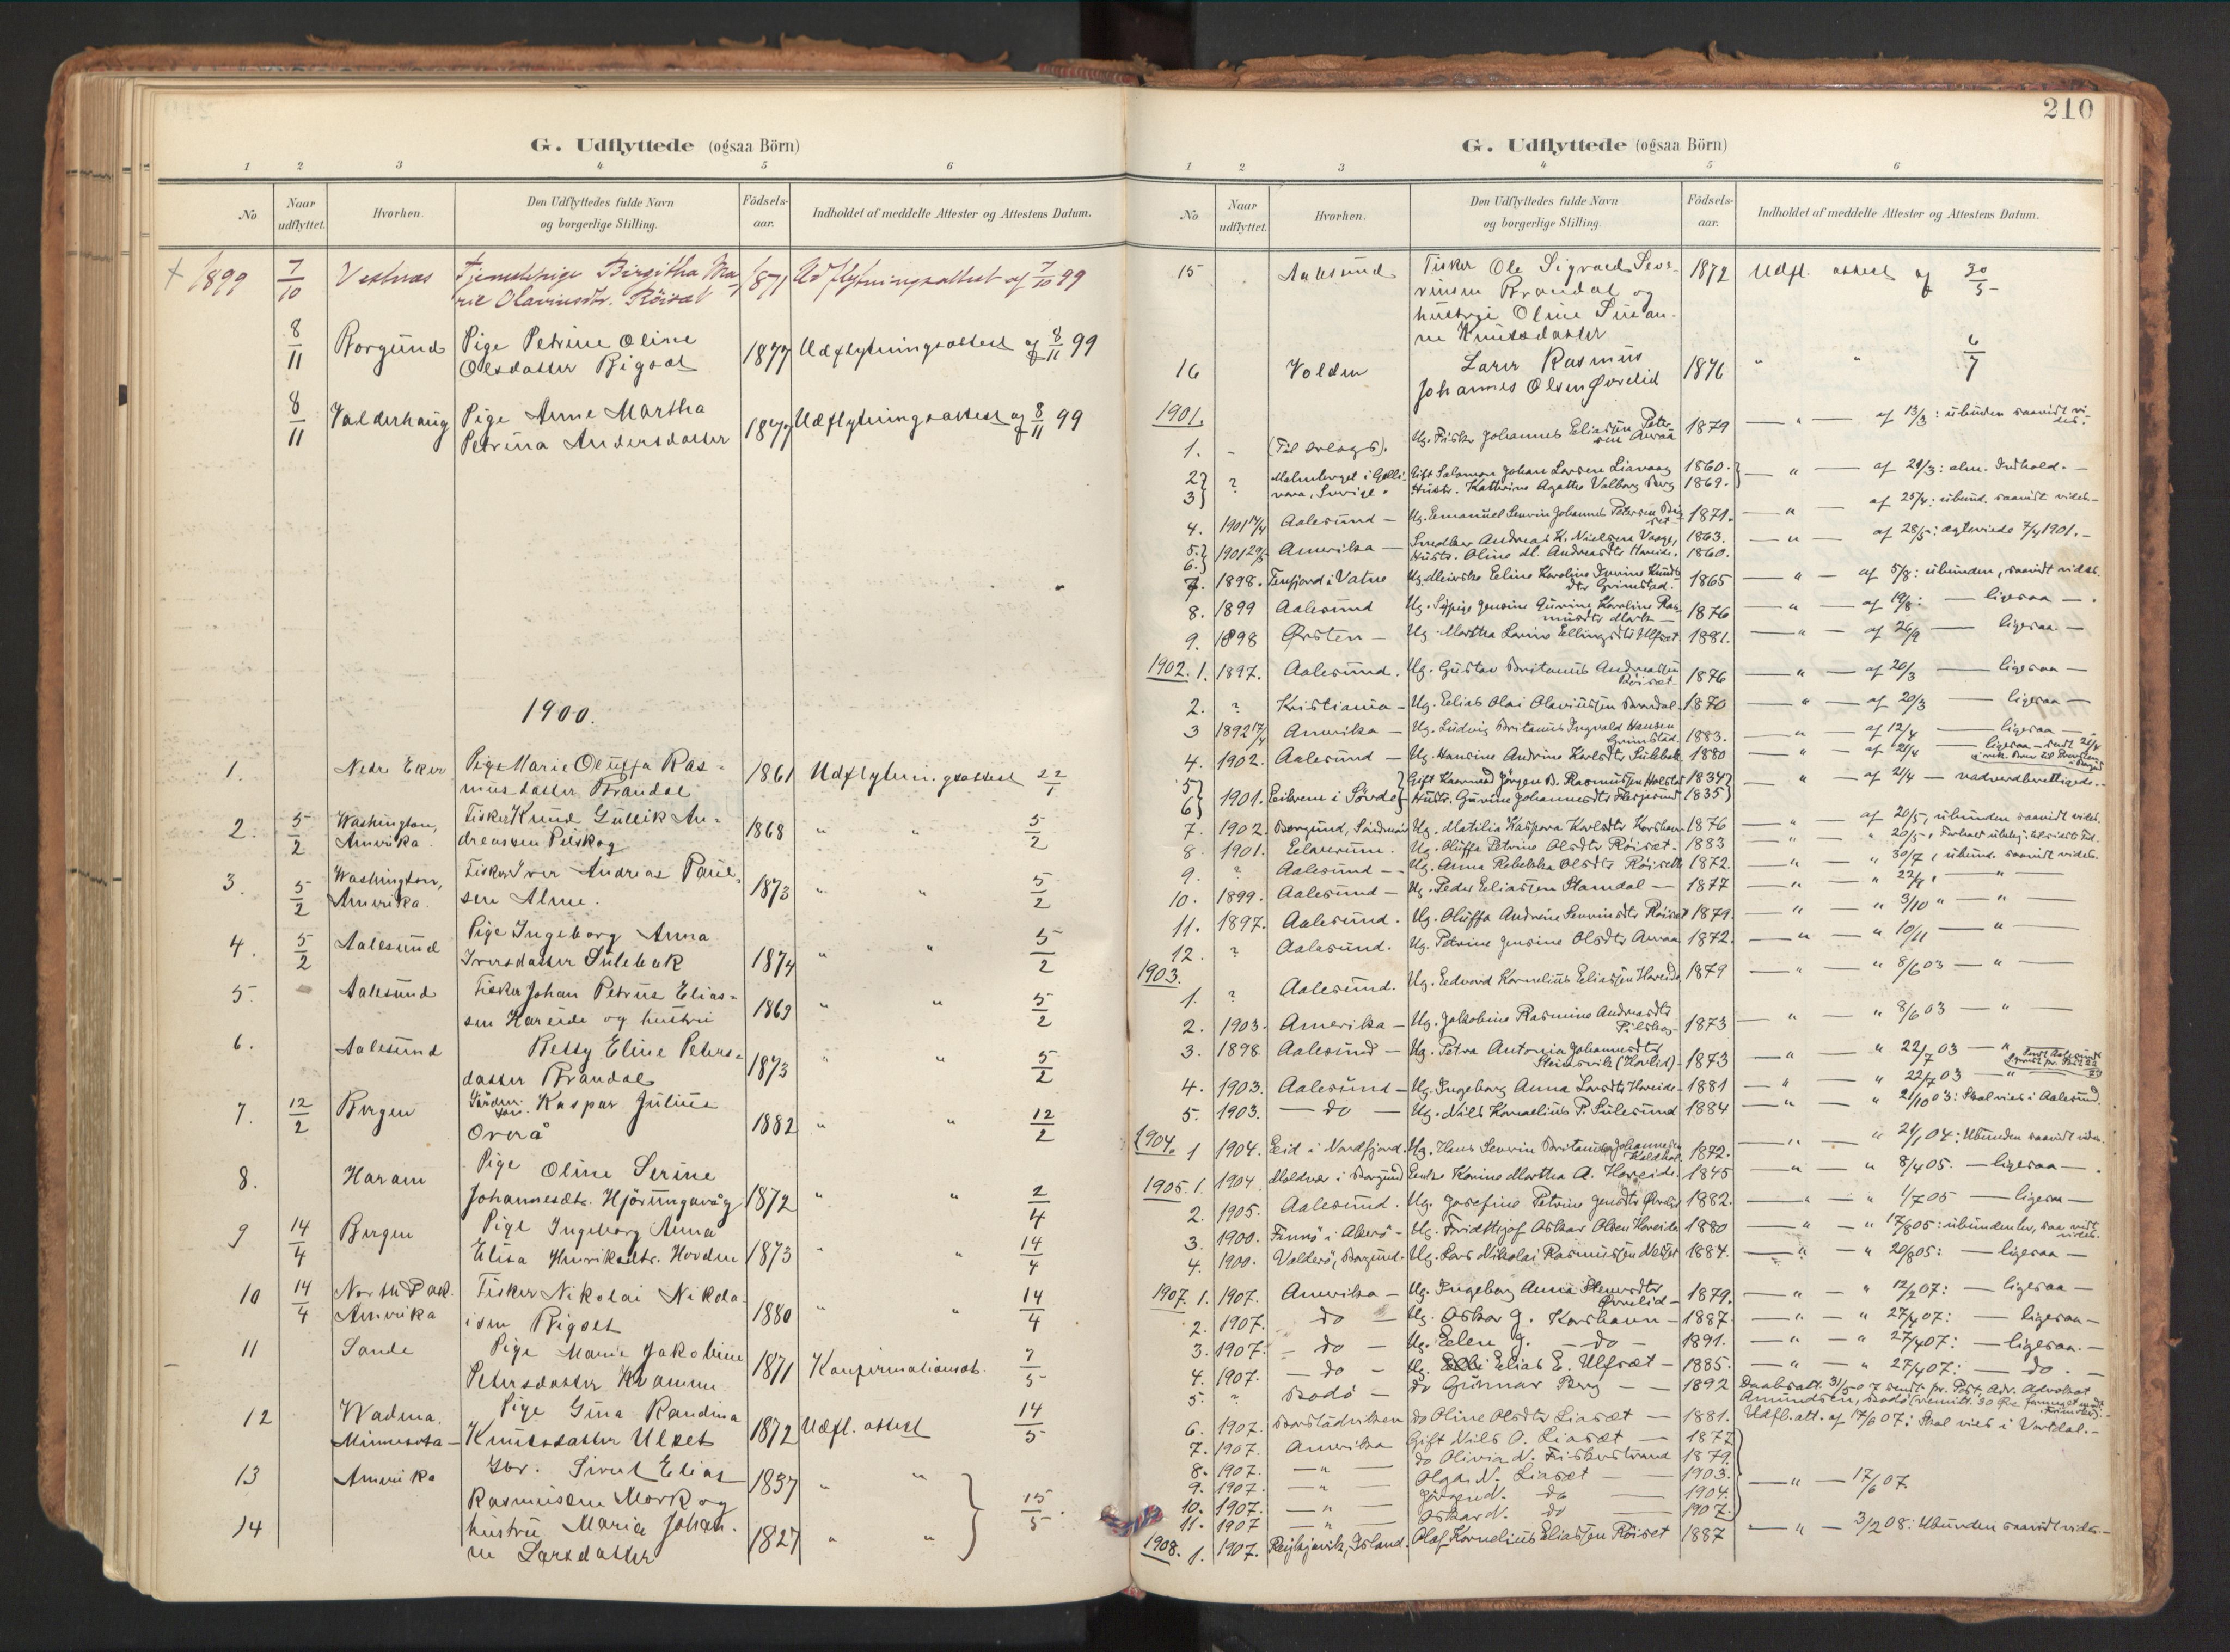 G. Udflyttede (ogsaa Börn)
1 2 3 4 5 6
No Naar udflyttet. Hvorhen. Den Udflyttedes fulde Navn og borgerlige Stilling. Födsels-aar. Indholdet af meddelte Attester og Attestens Datum.
+ 1899 7/10 Vestnæs Tjenestepige Birgitha Ma- 1871 Udflytningsattest af 7/10 99
rie Olavinsdtr. Röiset
8/11 Borgund Pige Petrine Oline 1877 Udflytningsattest af 8/11 99
Olsdatter Bigset
8/11 Valderhaug Pige Anne Martha 1877 Udflytningsattest af 8/11 99
Petrina Andersdatter
1900.
1. Nedre Eker Pige Marie Oluffa Ras- 1861 Udflytningsattest 22/1
musdatter Brandal
2. 5/2 Washington, Fisker Knud Gullik An- 1868 " " 5/2
Amerika. dreassen Pilskog
3. 5/2 Washington, Fisker Iver Andreas Paul- 1873 " " 5/2
Amerika. sen Alme.
4. 5/2 Aalesund Pige Ingeborg Anna 1874 " " 5/2
Iversdatter Sulebak
5. Aalesund Fisker Johan Petrus Elias- 1869 " " 5/2
sen Hareide og hustru
6. Aalesund Betsy Eline Peters- 1873 " " 5/2
datter Brandal
7. 12/2 Bergen Kaspar Julius 1882 " " 12/2
Overå
8. Haram Pige Oline Serine 1872 " " 2/4
Johannesdtr. Hjörungavåg
9 14/4 Bergen Pige Ingeborg Anna 1873 " " 14/4
Elisa Henriksdtr. Hovden
10 14/4 North Dak. Fisker Nikolai Nikola- 1880 " " 14/4
Amerika isen Bigset
11 Sande Pige Marie Jakobine 1871 Konfirmationsat. 7/5
Petersdatter Kvamme
12 Wadena, Pige Gina Randina 1872 Udfl. attest 14/5
Minnesota Knutsdatter Ulset
13 Amerika Gbr. Sivert Elias 1837 " "
Rasmussen Mork og 15/5.
14 hustru Maria Johan- 1827 " "
ne Larsdatter
210
G. Udflyttede (ogsaa Börn)
1 2 3 4 5 6
No Naar udflyttet. Hvorhen. Den Udflyttedes fulde Navn og borgerlige Stilling. Födsels-aar. Indholdet af meddelte Attester og Attestens Datum.
15 Aalesund Fisker Ole Sigvard Seve- 1872 Udfl. attest af 30/5
rinsen Brandal og
hustru Oline Susan-
ne Knutsdatter
16 Volden Lærer Rasmus 1876 " " 6/7
Johannes Olsen Øvrelid
1901.
1. - (Til orlogs). Ug. Fisker Johannes Eliassen Peter- 1879 — " — af 13/3: ubunden saavidt vi-
sen Auraa des.
2} ? Malmberget i Gelli- Gift Salomon Johan Larsen Liavaag 1860.} — " — af 21/3: alm. Indhold. —
3} vara, Sverige. Hustr. Kathrine Agathe Valborg Berg 1869.
4. 1901 17/4 Aalesund — Ug. Emanuel Severin Johannes Petersen 1871. — " — af 25/4. ubund. saavidt vides —
5.} 1901 29/5 Amerika — Snedker Andreas K. Nielsen Vaage, 1863. — " — af 28/5: ægteviede 7/4 1901. —
6.} Hustr. Oline M. Andreasdtr Hareide. 1860.
7. 1898. Tenfjord i Vatne Ug. Meierske Eeline Karoline Knuds- 1865 — " — af 5/8: ubunden, saavidt vides.
dtr Grimstad.
8. 1899 Aalesund Ug. Sypige Jensine Gurine Karoline Ras- 1876 — " — af 19/8: — ligesaa —.
musdtr Mork —
9. 1898 Ørsten — Ug. Martha Lovise Ellingsdtr Ulfset 1881. — " — af 26/9 — ligesaa —
1902. 1. 1897. Aalesund. Ug. Gustav Britanus Andreassen 1876 — " — af 20/3 — ligesaa —
Röiset
2. ? Kristiania — Ug. Eelias Olai Olavinssen Brandal 1870 — " — af 20/3 — ligesaa —
3 1892 17/4 Amerika — Ug. Ludvig Britanus Ingvald Hansen 1883. — " — af 12/4 — ligesaa —
Grimstad
4. 1902. Aalesund — Ug. Hansine Andrine Karlsdtr Sulebak 1880 — " — af 21/4 — ligesaa —
5} 1901. Eikrem i Sövde Gift Kaarmand Jörgen B. Rasmussen Holstad 1834} — " — af 2/4 — nadverdberettigede. —
6} Hustr. Gurine Johannesdtr 1835}
7. 1902. Borgund, Söndmör Ug. Matilia Kaspara Karlsdtr Korshavn 1876 — " — af 20/5, ubunden saavidt vides.
8 1901. Eelverum. Ug. Oluffa Petrine Olsdtr Röiset. 1883 — " — " 20/5,
9. ? Aalesund — Ug. Anna Rebekka Olsdtr Röiset 1872. — " — " 30/7, ubund. saavidt vides.
10. 1899. Aalesund — Ug. Peder Eeliassen Standal — 1877 — " — " 22/9, — " —
11. 1897. Aalesund. Ug. Oluffa Andrine Severinsdtr Röiset 1879. — " — " 3/10 " — " —
12. ? Aalesund. Ug. Petrine Jensine Olsdtr Aaraa 1872. — " — " 10/11 — " —
1903.
1. ? Aalesund. Ug. Eedvard Kornelius Eeliassen Hareide 1879 — " — " 8/6 03 — " —
2. 1903. Amerika — Ug. Jakobine Rasmine Andreasdtr 1873 — " — " 8/6 03 — " —
Pilskog
3. 1898. Aalesund — Ug. Petra Antonia Johannesdtr 1873 — " — " 22/7 03 — "
4. 1903. Aalesund — Ug. Ingeborg Anna Larsdtr Hareide 1881 — " — " 22/7 03 — "
5. 1903. — do — Ug. Nils Kornelius P. Sulesund 1884 — " — " 21/10 03: Skal vies i Aalesund.
1904. 1 1904. Eid i Nordfjord. Ug. Hans Severin Britanus Johannessen 1872. — " — " 21/1 04: Ubunden saavidt vides.
1905. 1. 1904. Moldvær i Borgund Enke Karine Martha A. Hareide. 1845 — " — " 8/4 05. — ligesaa —.
2. 1905. Aalesund. Ug. Josefine Petrine Jensdtr Øvrelid 1882. — " — " 1/7 05 — ligesaa —
3. 1900. Finnö i Akerö — Ug. Fridthjof Oskar Olsen Hareide 1880 — " — " 17/8 05: ubunden saavidt vides.
4. 1900. Valderö, Borgund. Ug. Lars Nikolai Rasmussen Nesset 1884. — " — " 20/8 05: — ligesaa —
1907. 1. 1907. Amerika — Ug. Ingeborg Anna 1879. — " — " 12/2 07: — ligesaa —
Øvrelid —
2. 1907. do — Ug. Oskar G. Korshavn — 1887. — " — " 27/4 07: — ligesaa —
3. 1907. — do — Ug. Eelen G. — do — 1891. — " — " 27/4 07: — ligesaa. —
4. 1907. — do — Ug. Elias E. Ulfset — 1885. — " — " 27/4 07: — do. —
5. ? Bodö — do Gunnar Berg — 1892 Daabsatt. 31/5 07 sendt pr. Post, Adr. Advokat
Amundsen, Bodö
6. 1907. do Oline Olsdtr Liaset — 1881. Udfl. att. af 17/6 07: Skal vies i Vartdal. —
7. 1907. Amerika Gift Nils O. Liaset — 1877
8. 1907. — " — do Olivia N. Fiskerstrand 1879.
9. 1907. — " — Olga N. Liaset — 1903. — " — 17/6 07.
10. 1907. — " — Jörgen N. do — 1904.
11. 1907 — " — Oskar N. do — 1907.
1908. 1. 1907. Reykjavik, Island. Olaf Kornelius Eliassen Röiset 1887 — " — 3/2 08: Ubunden saavidt vides. —